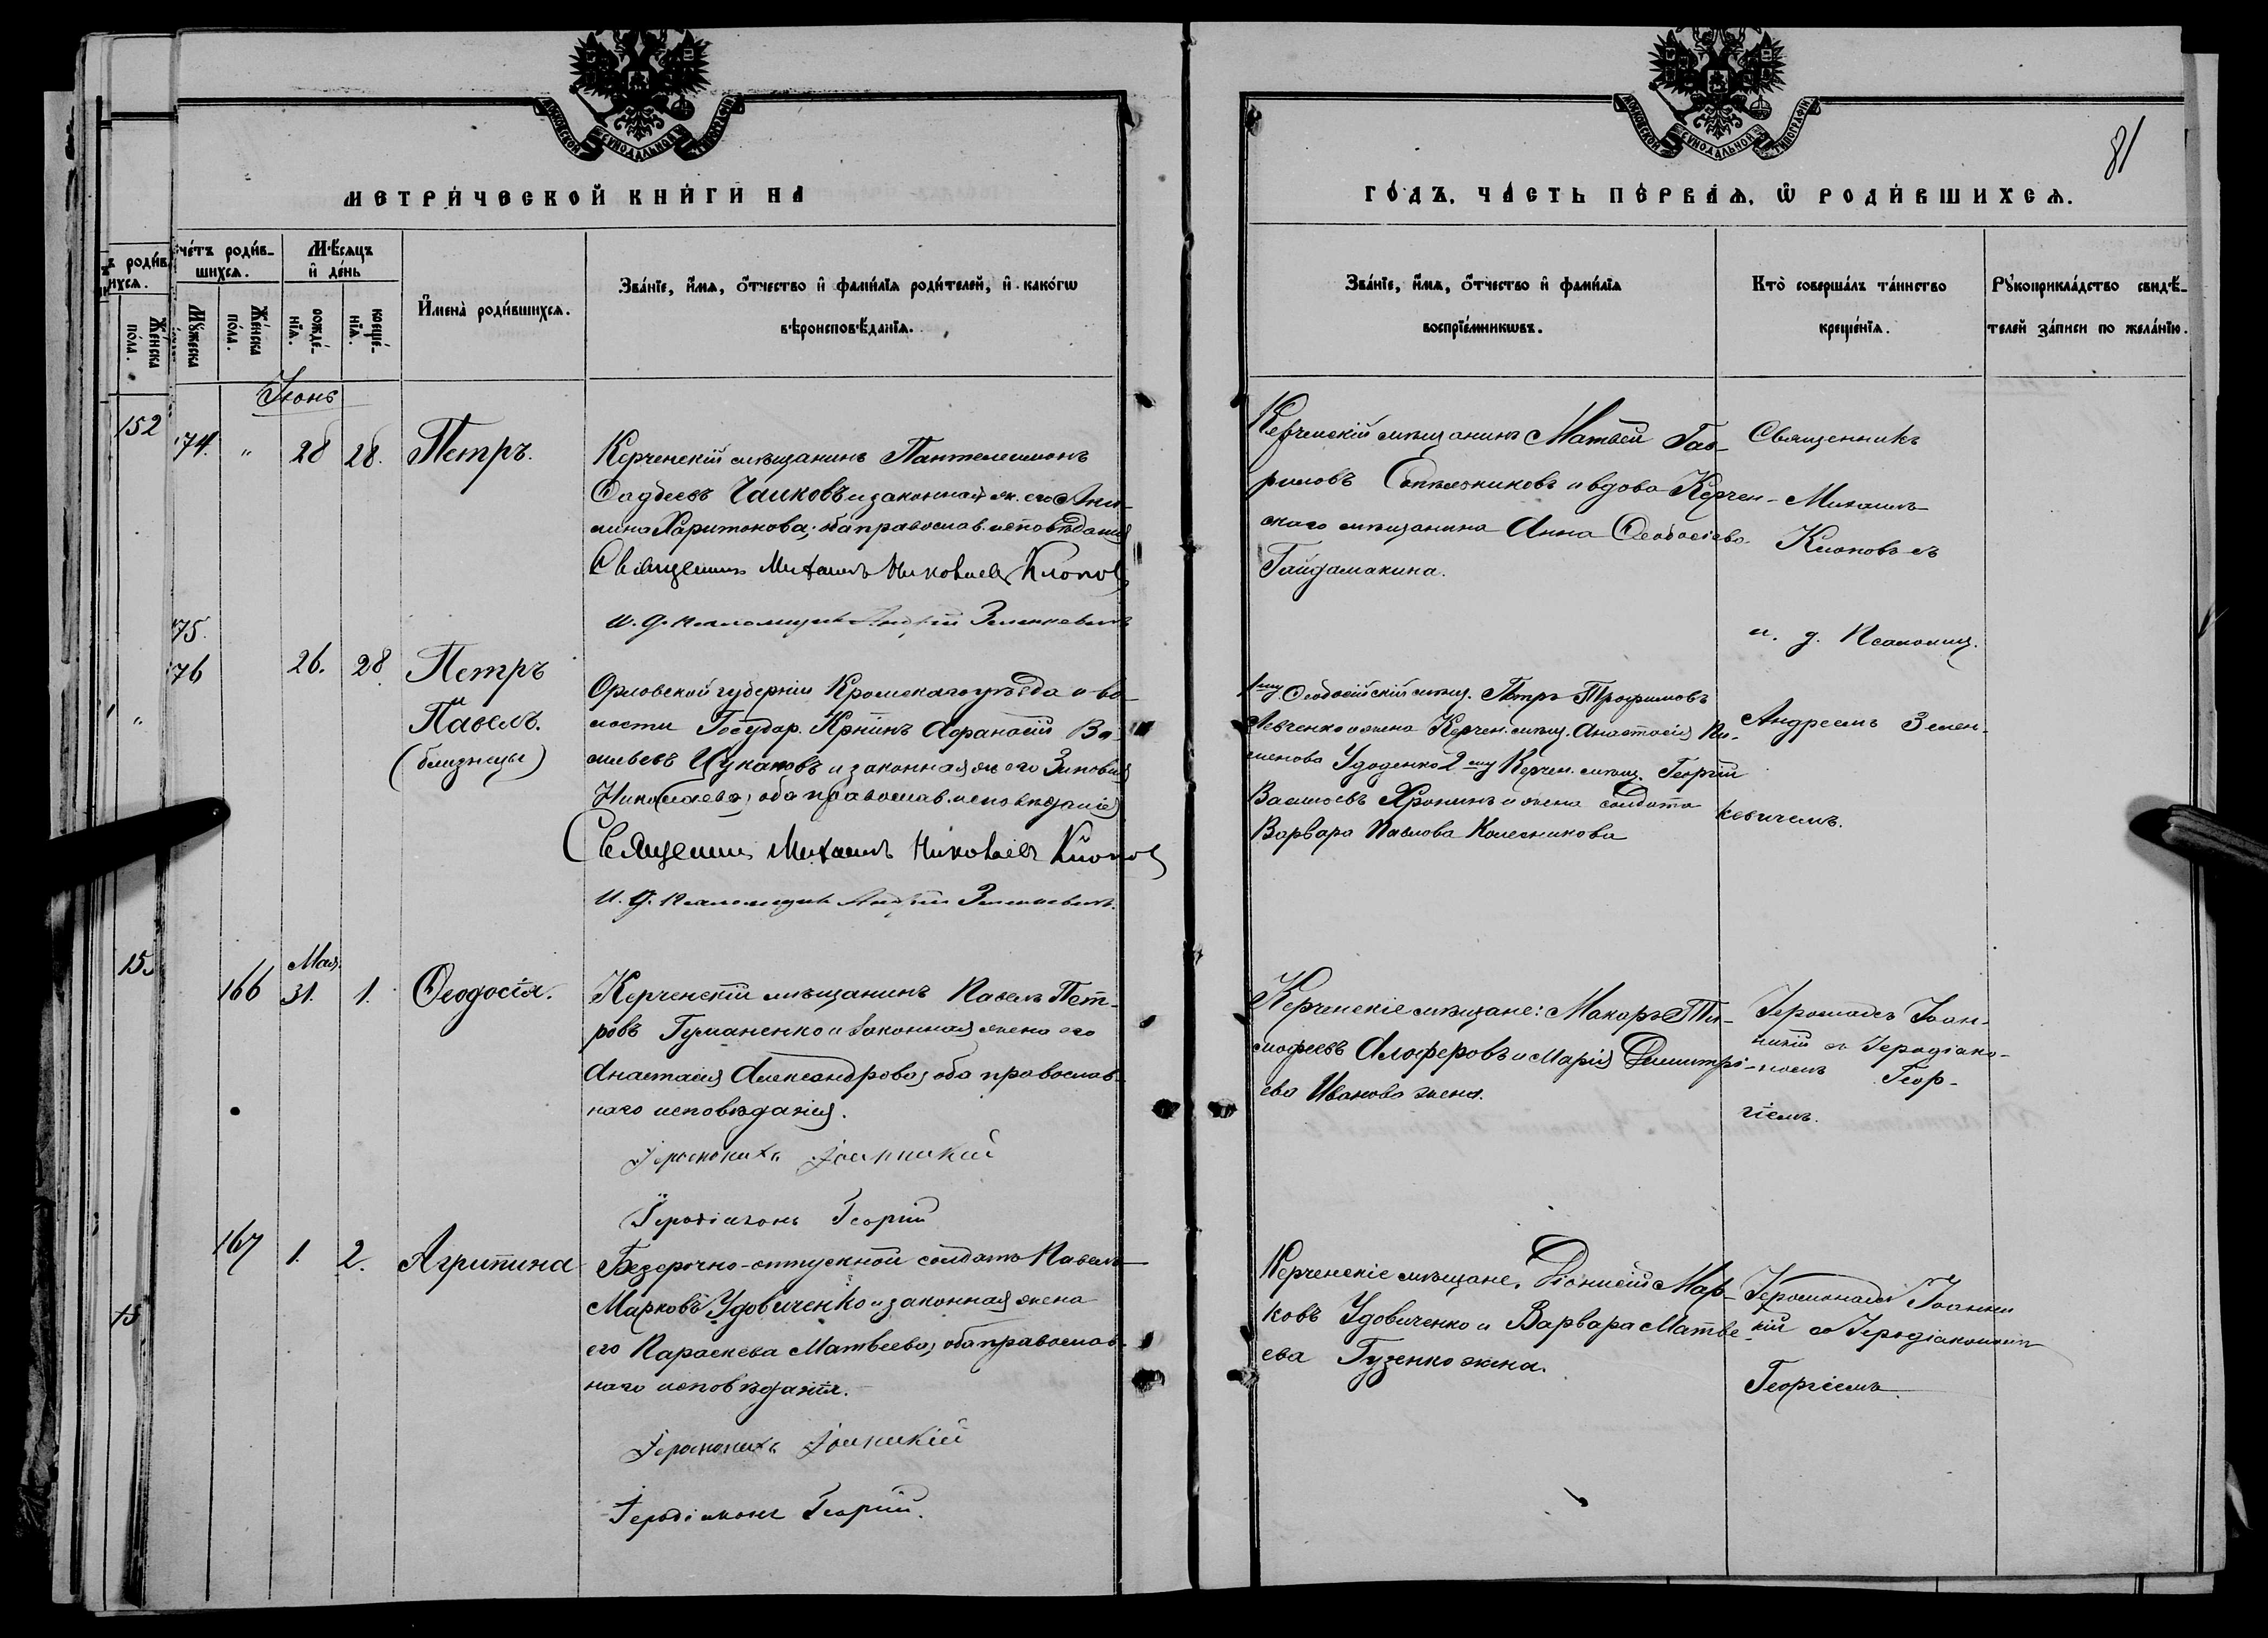 МОСКОВСКОЙ СѴНОДАЛЬНОЙ ТИПОГРАФІИ
МОСКОВСКОЙ СѴНОДАЛЬНОЙ ТИПОГРАФІИ
81
МЕТРИ́ЧЕСКОЙ КНИ́ГИ НА
ГО́ДЪ, ЧА́СТЬ ПЕ́РВАЯ, Ѡ РОДИ́ВШИХСЯ.
Сче́тъ роди́в-
шихся.
Мꙋ́жеска
Же́нска
по́ла.
Мѣ́сяцъ
и҆ де́нь
рожде́-
нїя.
креще́-
нїя.
И҆мена̀ роди́вшихся.
Зва́нїе, и҆́мя, ѻ҆́тчество и҆ фами́лїя роди́телей, и҆ како́гѡ
вѣроисповѣ́данїя.
Зва́нїе, и҆́мя, ѻ҆́тчество и҆ фами́лїя
воспрїе́мникѡвъ.
Кто̀ соверша́лъ та́инство
креще́нїя.
Рꙋкоприкла́дство свидѣ́-
телей за́писи по жела́нїю.
Женска
пола.
152
Іюнь
174. " 28 28. Петръ.
Керченскій мѣщанинъ Пантелеимонъ
Фадѣевъ Чайковъ и законная ж. его Аки-
лина Харитонова; оба православ. исповѣданія
Священникъ Михаилъ Николаевъ Клоповъ
и. д. псаломщика Андрей Зеленкевичъ
Керченскій мѣщанинъ Матвей Гав-
риловъ Сапожниковъ и вдова Керчен-
скаго мѣщанина Анна Феодосіева
Гайдамакина.
Священникъ
Михаилъ
Клоповъ съ
и. д. псаломщ.
Андреемъ Зелен-
кевичемъ.
175.
176 26. 28 Петръ
и
Павелъ.
(близнецы)
Орловской губерніи Кромскаго уѣзда и во-
лости Государ. Крнинъ Афанасій Ва-
сильевъ Цукановъ и законная ж. его Зиновія
Николаева, оба православ. исповѣданія
Священникъ Михаилъ Николаевъ Клоповъ
И. д. псаломщика Андрей Зеленкевичъ.
1му Феодосійскій мѣщ. Петръ Трофимовъ
Левченко и жена Керчен. мѣщ. Анастасія Пи-
менова Удоденко 2му Керчен. мѣщ. Георгій
Васильевъ Хронинъ и жена солдата
Варвара Павлова Колесникова
15
Мая
166 31. 1. Феодосія.
Керченскій мѣщанинъ Павелъ Пет-
ровъ Гуманенко и законная жена его
Анастасія Александрова, оба православ-
наго исповѣданія.
Іеромонахъ Іоанникій
Іеродіаконъ Георгій
Керченскіе мѣщане: Макаръ Ти-
мофеевъ Алоферовъ и Марія Димитрі-
ева Иванова жена.
Іеромонахъ Іоан-
никій съ Іеродіако-
номъ Геор-
гіемъ.
15
167 1. 2. Агрипина
Безсрочно-отпускной солдатъ Павелъ
Марковъ Удовиченко и законная жена
его Параскева Матвеева, оба православ-
наго исповѣданія.
Іеромонахъ Іоанникій
Іеродіаконъ Георгій.
Керченскіе мѣщане, Діонисій Мар-
ковъ Удовиченко и Варвара Матве-
ева Гузенко жена.
Іеромонахъ Іоанни
кій съ Іеродіакономъ
Георгіемъ